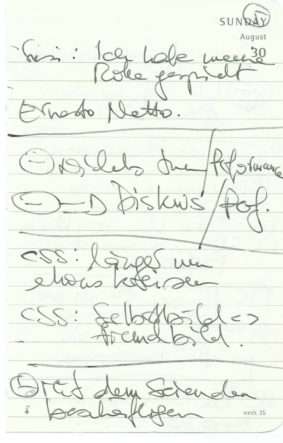 SUNDAY 5
August
30
Susi: Ich habe meine
Rolle gespielt
Ernesto Netto.
nichts tun / Performance
Diskurs / Perf.
CSS: länger um
etwas
CSS: Selbstbild <=>
Fremdbild.
mit dem Seienden
beschäftigen
week 35